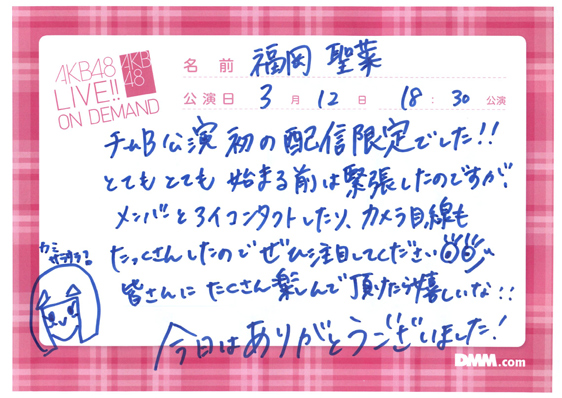 AKB48
LIVE!!
ON DEMAND
AKB
48
名前 福岡 聖菜
公演日 3月12日 18:30公演
チームB公演 初の配信限定でした!!
とてもとても 始まる前は緊張したのですが、
メンバーとアイコンタクトしたり、カメラ目線も
たっくさんしたので ぜひ注目してください
皆さんに たくさん楽しんで 頂けたら嬉しいな!!
今日はありがとうございました!
DMM.com